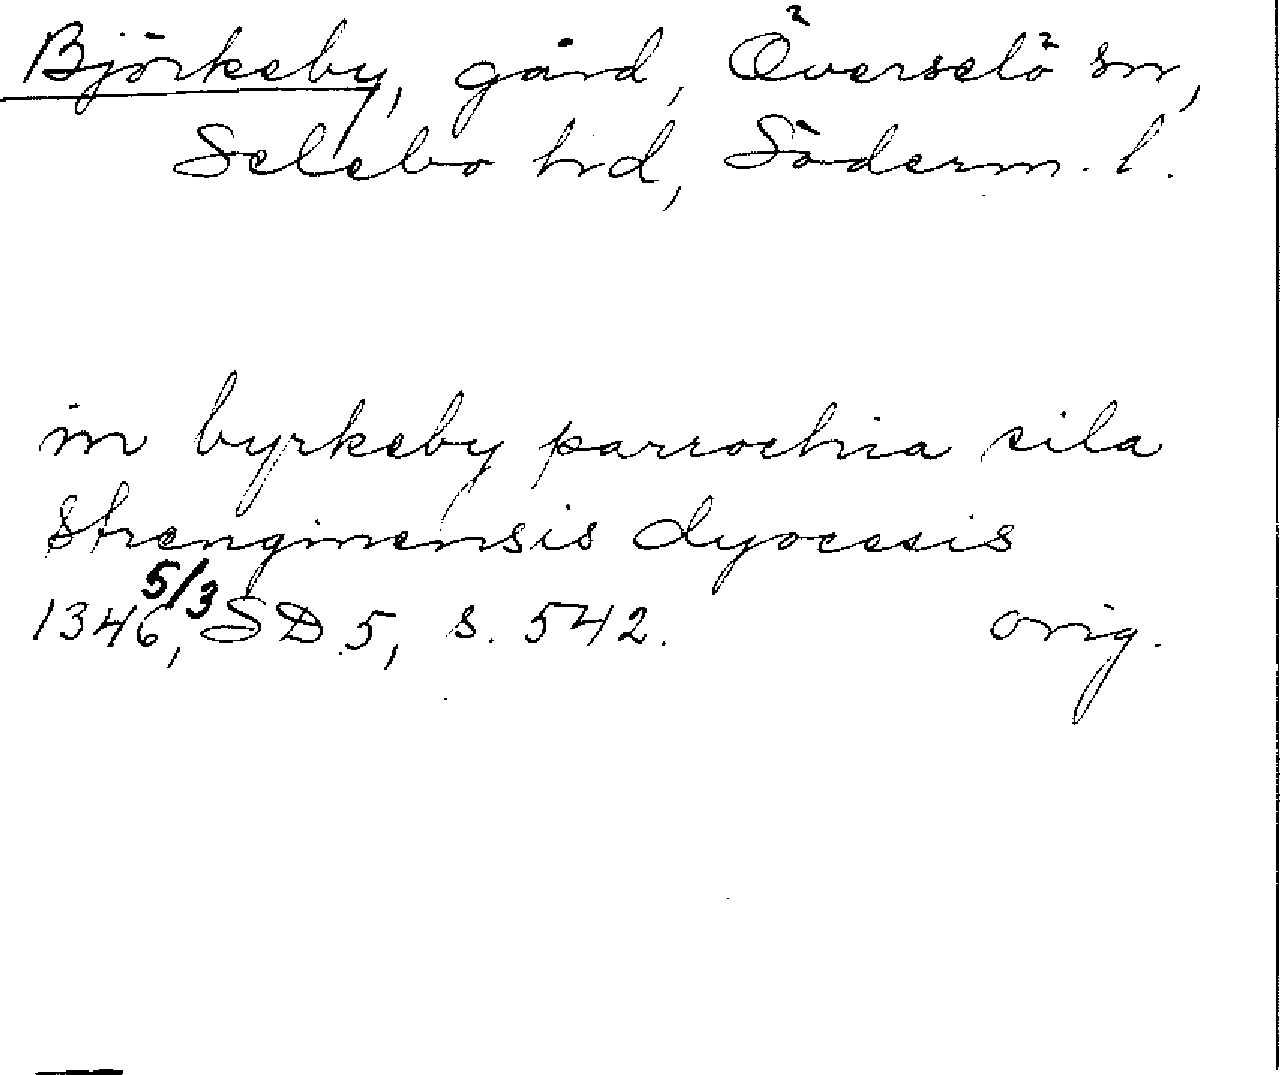 Björkeby, gård, Överselö sn,
Selebo hd, Söderm. l.
in byrkeby parrochia sila
Strenginensis dyocesis
1346 5/3, SD 5, s. 542. orig.